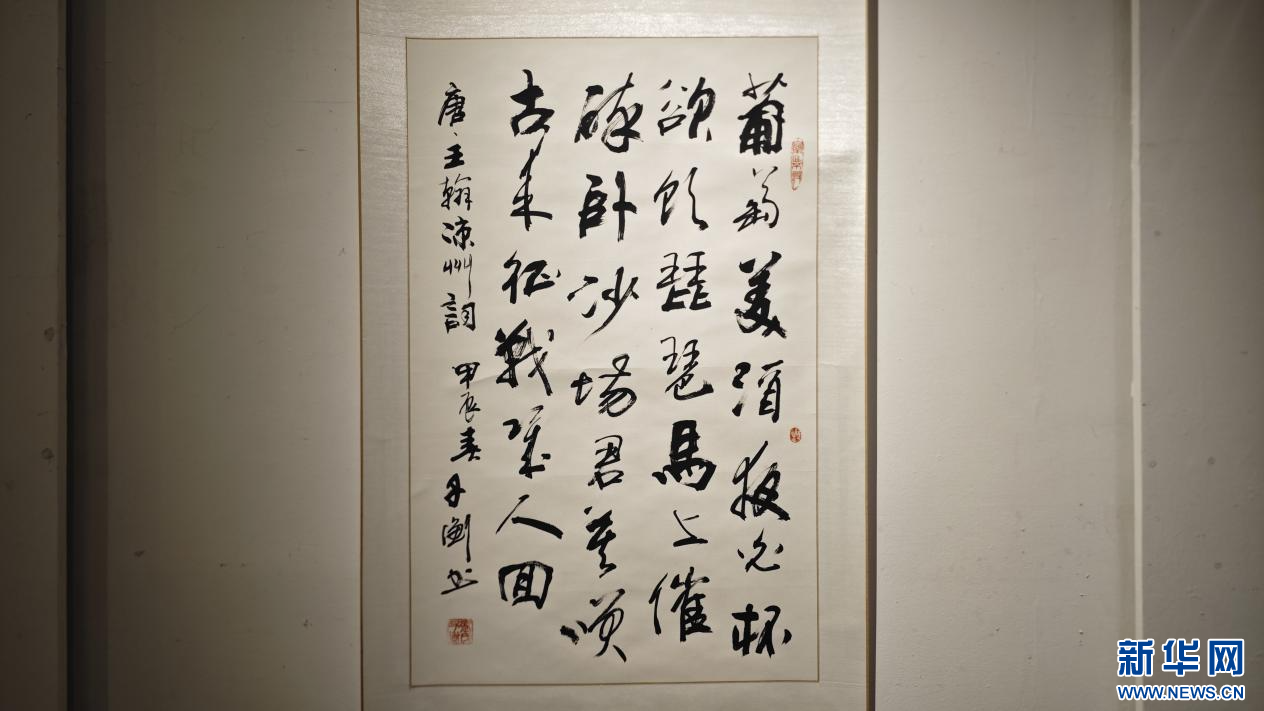 葡萄美酒夜光杯
欲飲琵琶馬上催
醉卧沙場君莫咲
古来征戰幾人回
唐王翰凉州詞 甲辰春 书
新华网
WWW.NEWS.CN